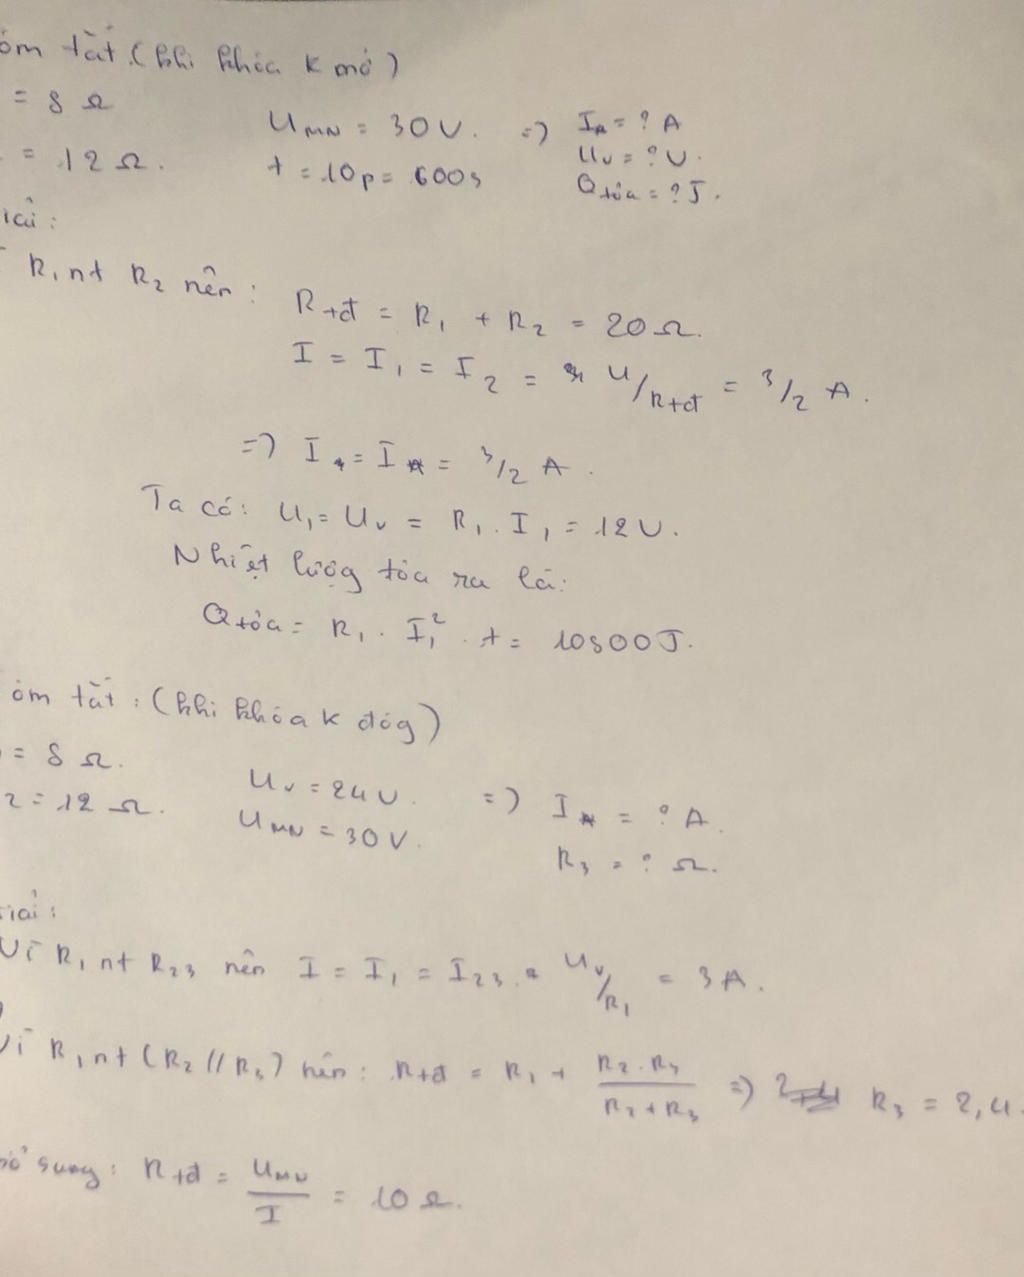 óm tắt (khi khóa K mở)
= 8 Ω
UMN = 30V. => IA = ? A
= 12 Ω. t = 10p = 600s Uv = ? V.
Qtỏa = ? J.
iải:
R1 nt R2 nên: Rtđ = R1 + R2 = 20 Ω.
I = I1 = I2 = U/Rtđ = 3/2 A.
=> I1 = IA = 3/2 A.
Ta có: U1 = Uv = R1 . I1 = 12V.
Nhiệt lượg tỏa ra là:
Qtỏa = R1 . I1² . t = 10800J.
óm tắt : (khi khóa K đóg)
= 8 Ω.
2 = 12 Ω. Uv = 24V. => IA = ? A.
UMN = 30V. R3 = ? Ω.
iải :
Vì R1 nt R23 nên I = I1 = I23 = Uv/R1 = 3A.
Vì R1 nt (R2 // R3) nên : Rtđ = R1 + R2 . R3 / R2 + R3 => R3 = 2,4
bổ sung : Rtđ = UMN / I = 10 Ω.